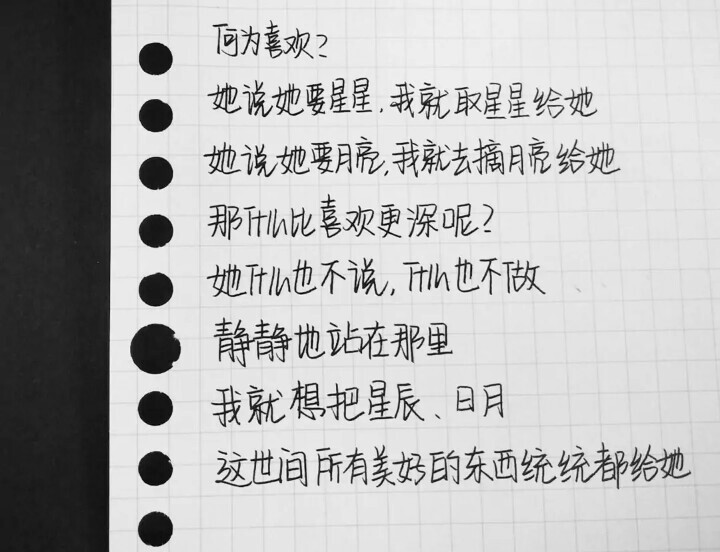 何为喜欢?
她说她要星星,我就取星星给她
她说她要月亮,我就去摘月亮给她
那什么比喜欢更深呢?
她什么也不说,什么也不做
静静地站在那里
我就想把星辰、日月
这世间所有美好的东西统统都给她